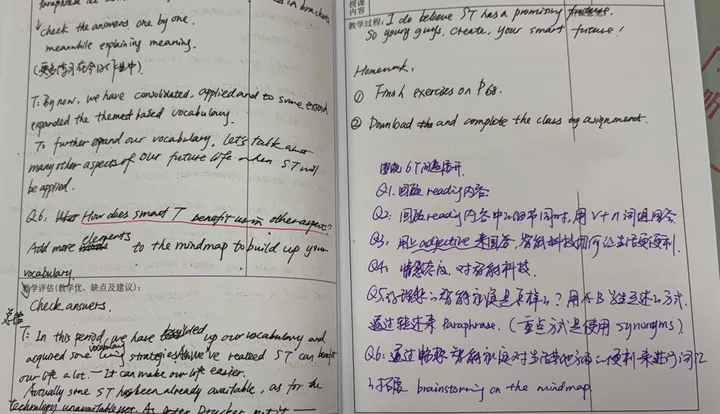 Paraphrase the
in brackets
check the answers one by one.
meanwhile explaining meaning.
T: By now, we have consolidated, applied and to some extend
expanded the themed based vocabulary.
To further expand our vocabulary, let's talk
many other aspects of our future life when ST will
be applied.
Q6. What How does smart T benefit us in other aspects?
Add more elements to the mindmap to build up your
vocabulary.
教学评估(教学优、缺点及建议):
Check answers.
总结
T: In this period, we have builded up our vocabulary and
acquired some vocabulary strategies. we've realized ST can benefit
our life a lot. — It can make our life easier.
Actually some ST has been already available, as for the
technology unavailable yet. As Peter Drucker put it —
授课
内容
教学过程: I do believe ST has a promising future.
So young guys, create, your smart future!
Homework.
① Finish exercises on P68.
② Download the and complete the class assignment.
围绕6个问题展开.
Q1. 回顾reading内容
Q2: 回顾reading内容中的细节同时, 用V+n词组回答
Q3: 用adjective来回答, 智能科技如何让生活更便利.
Q4: 情感态度, 对智能科技.
Q5: 智能家庭是怎样的? 用A B 方式.
通过转述来 Paraphrase. (重点方式是使用 synonyms).
Q6: 通过畅想智能家庭对生活其他方面的便利来进行词汇
的拓展 brainstorming on the mindmap.